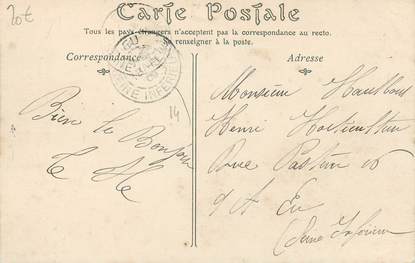 20€
Carte Postale
Tous les pays étrangers n'acceptent pas la correspondance au recto.
Se renseigner à la poste.
Correspondance
Adresse
EU
INFERIEURE
14
Bien le Bonjour
Monsieur
Henri Horticulteur
Rue Pasteur
Eu
(Seine Inférieure